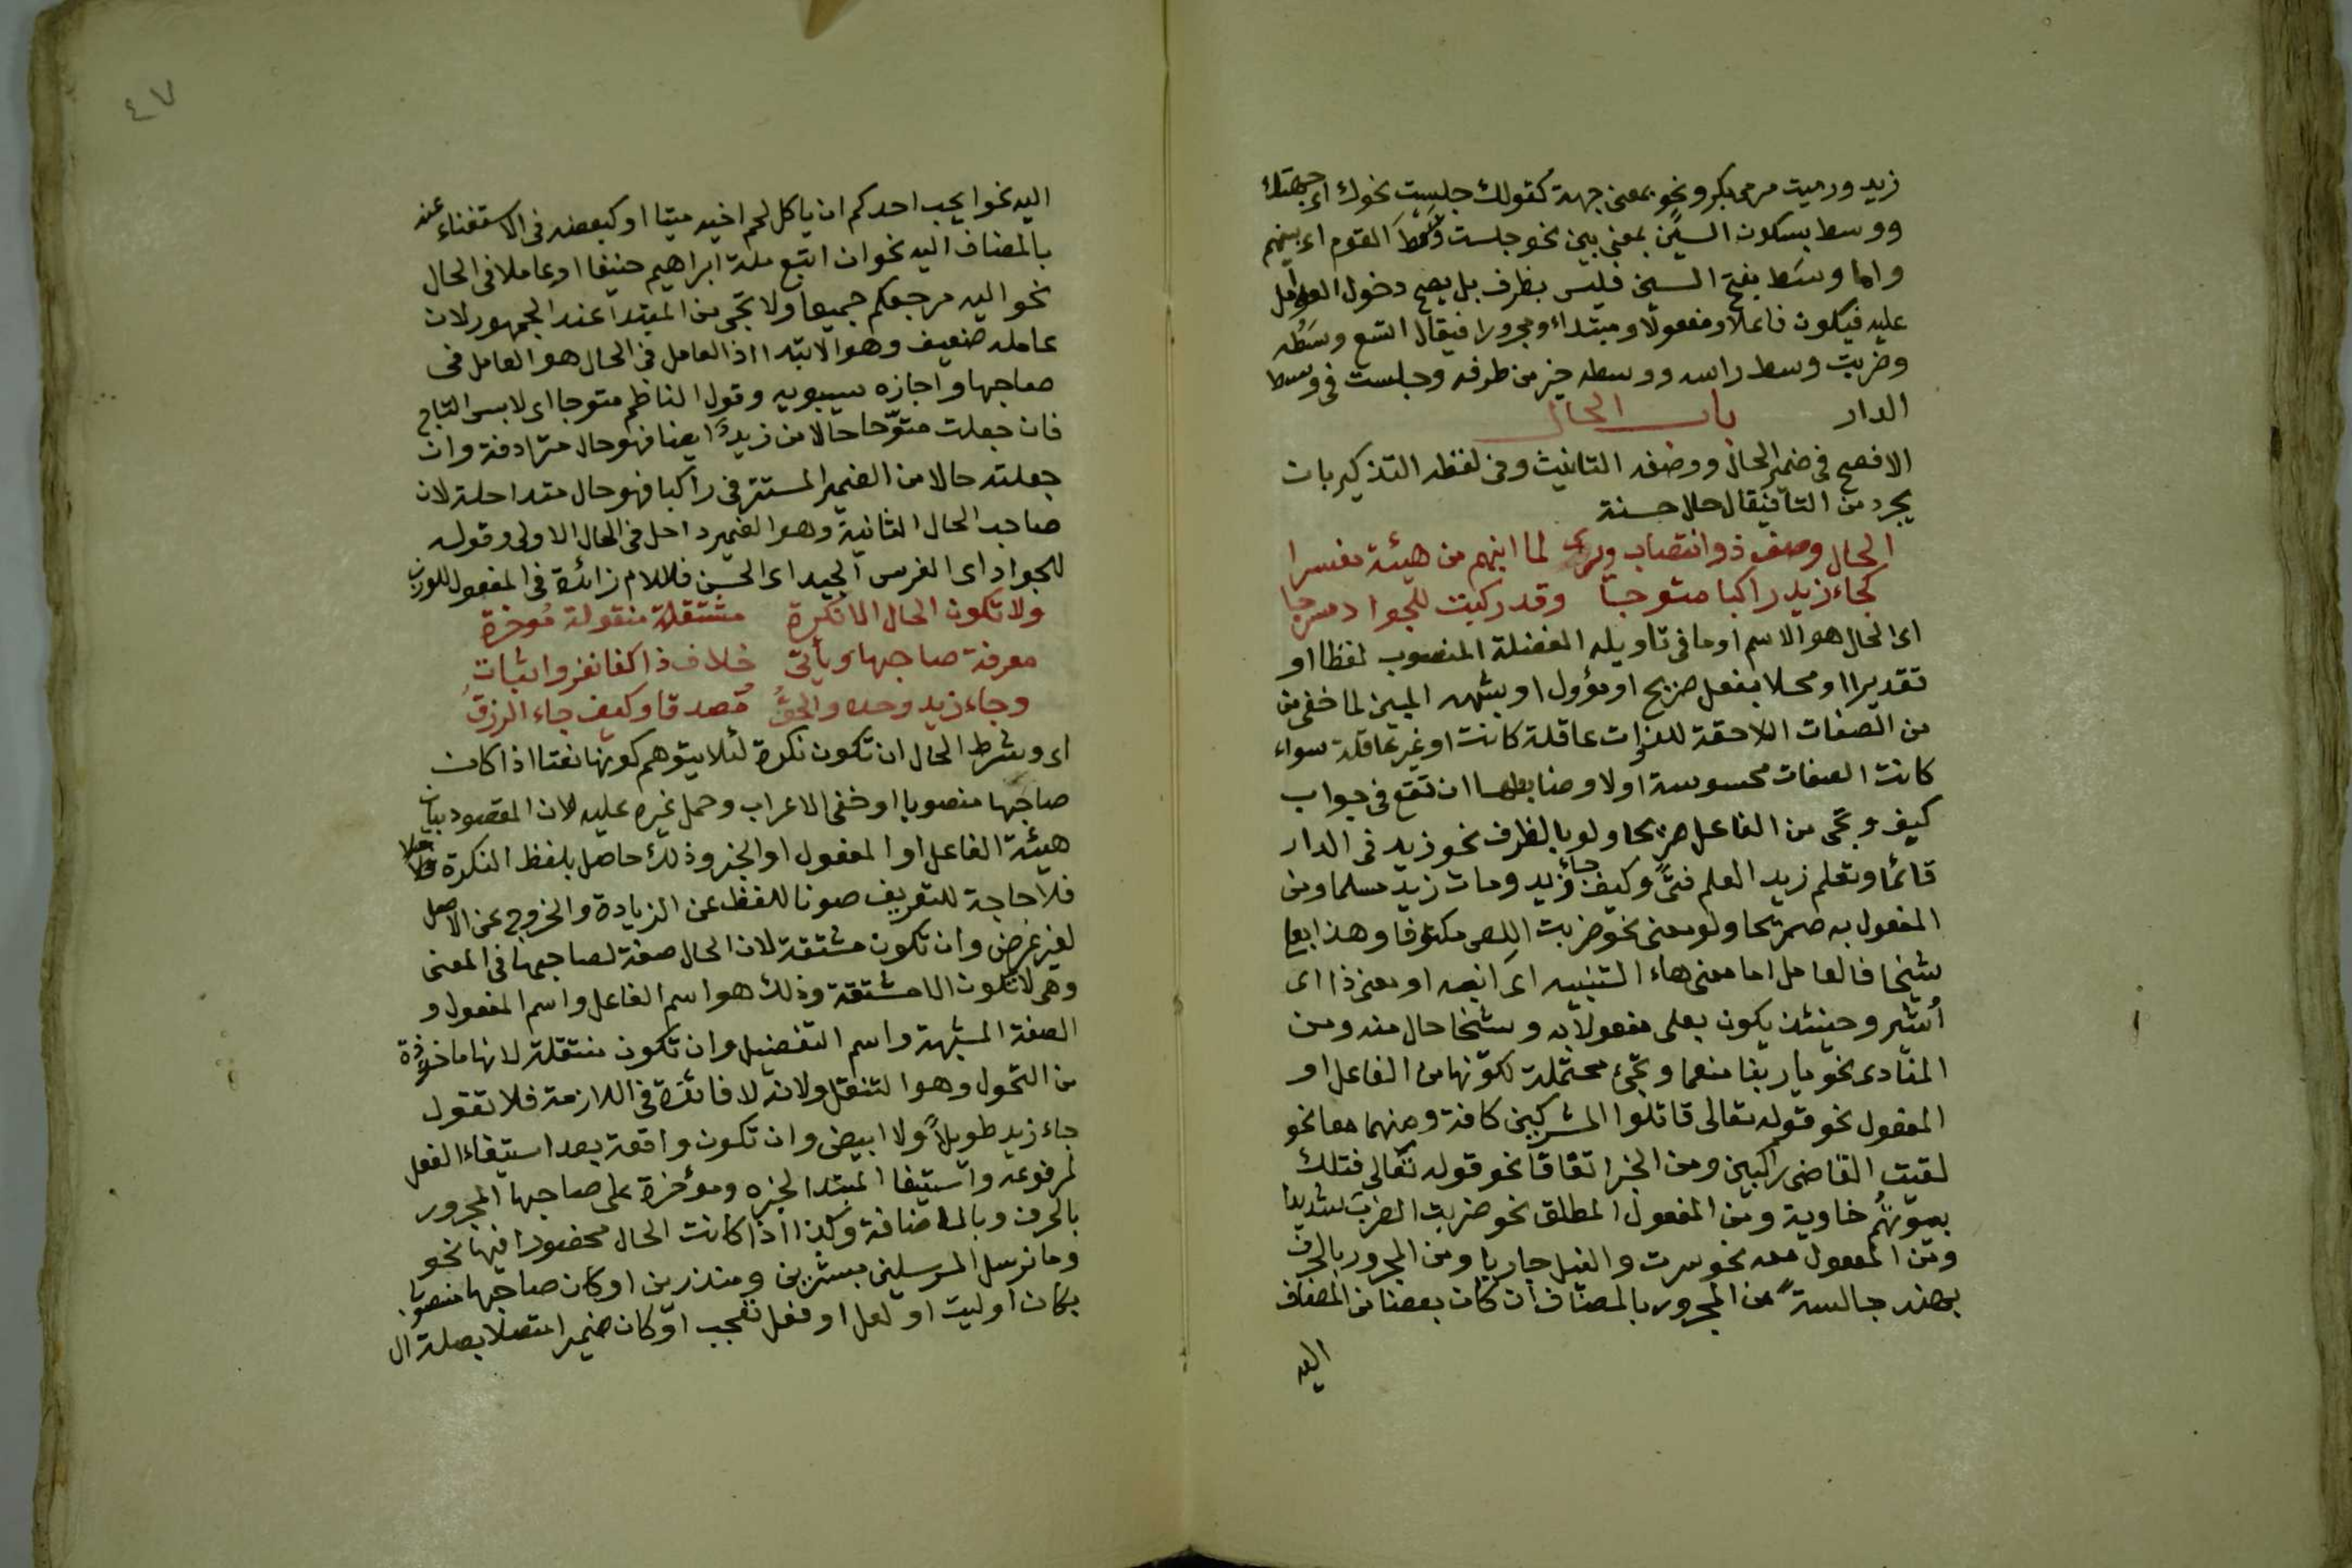 زيد ورميت مرمى بكر ونحو بمعنى جهة كقولك جلست نحوك اى جهتك
ووسط بسكون السين بمعنى بين نحو جلست وَسْطَ القوم اى بينهم
واما وسَط بفتح السين فليس بظرف بل يصح دخول العوامل
عليه فيكون فاعلا ومفعولا ومبتداء ومجرورا فيقال اتسع وسَطُه
وضربت وسط راسه ووسطه خير من طرفه وجلست فى وسط
الدار باب الحال
الافصح فى ضمير الحال ووصفه التانيث وفى لفظه التذكير بان
يجرد من التا فيقال حال حسنة
الحال وصف ذو انتصاب ويرى لما انبهم من هيئة مفسرا
كجاء زيد راكبا متوجا وقد ركبت للجواد مسرجا
اى الحال هو الاسم او ما فى تاويله الفضلة المنصوب لفظا او
تقديرا او محلا بفعل صريح او مؤول او بشبهه المبين لما خفى من
من الصفات اللاحقة للذوات عاقلة كانت او غير عاقلة سواء
كانت الصفات محسوسة اولا وضابطها ان تقع فى جواب
كيف وتجى من الفاعل صريحا ولو بالظرف نحو زيد فى الدار
قائما وتعلم زيد العلم فتًى وكيف جاء زيد ومات زيد مسلما ومن
المفعول به صريحا ولو معنى نحو ضربت اللص مكتوفا وهذا بعلى
شيخا فالعامل اما معنى هاء التنبيه اى انبه او معنى ذا اى
أشير وحينئذ يكون بعلى مفعولا به وشيخا حال منه ومن
المنادى نحو يا ربنا منعما وتجئ محتملة لكونها من الفاعل او
المفعول نحو قوله تعالى قاتلوا المشركين كافة ومنهما معا نحو
لقيت القاضى راكبين ومن الخبر اتفاقا نحو قوله تعالى فتلك
بيوتهُم خاوية ومن المفعول المطلق نحو ضربت الضرب شديدا
ومن المفعول معه نحو سرت والنيل جاريا ومن المجرور بالحرف
بهند جالسةً من المجرور بالمضاف ان كان بعضا من المضاف
اليه
٤٧
اليه نحو ايحب احدكم ان ياكل لحم اخيه ميتا او كبعضه فى الاستغناء عنه
بالمضاف اليه نحو ان اتبع ملة ابراهيم حنيفا او عاملا فى الحال
نحو اليه مرجعكم جميعا ولا تجى من المبتدا عند الجمهور لان
عامله ضعيف وهو الابتدا اذ العامل فى الحال هو العامل فى
صاحبها واجازه سيبويه وقول الناظم متوجا اى لابس التاج
فان جعلت متوّجا حالا من زيدً ايضا فهو حال مترادفة وان
جعلته حالا من الضمير المستتر فى راكبا فهو حال متداخلة لان
صاحب الحال الثانية وهو الضمير داخل فى الحال الاولى وقوله
للجواد اى الفرس الجيد اى الحسن فاللام زائدة فى المفعول للوزن
ولا تكون الحال الا نكرة مشتقة منقولة مُوخرة
معرفة صاحبها ويأتى خلاف ذا كفانفروا ثبات
وجاء زيد وحده والحقُّ مُصدقا وكيف جاء الرزقُ
اى وشرط الحال ان تكون نكرة لئلا يتوهم كونها نعتا اذا كان
صاحبها منصوبا او خفى الاعراب وحمل غيره عليه لان المقصود بيان
هيئة الفاعل او المفعول او الخبر وذلك حاصل بلفظ النكرة
فلا حاجة للتعريف صونا للفظ عن الزيادة والخروج عن الاصل
لغير غرض وان تكون مشتقة لان الحال صفة لصاحبها فى المعنى
وهى لا تكون الا مشتقة وذلك هو اسم الفاعل واسم المفعول و
الصفة المشبهة واسم التفضيل وان تكون منتقلة لانها ماخوذة
من التحول وهو التنقل ولانه لا فائدة فى اللازمة فلا تقول
جاء زيد طويلاً ولا ابيض وان تكون واقعة بعد استيفاء الفعل
لمرفوعه واستيفا المبتدا لخبره ومؤخرة على صاحبها المجرور
بالحرف وبالاضافة وكذا اذا كانت الحال محصورا فيها نحو
وما نرسل المرسلين مبشرين ومنذرين او كان صاحبها منصوبا
بكان او ليت او لعل او فعل تعجب او كان ضميرا متصلا بصلة ال